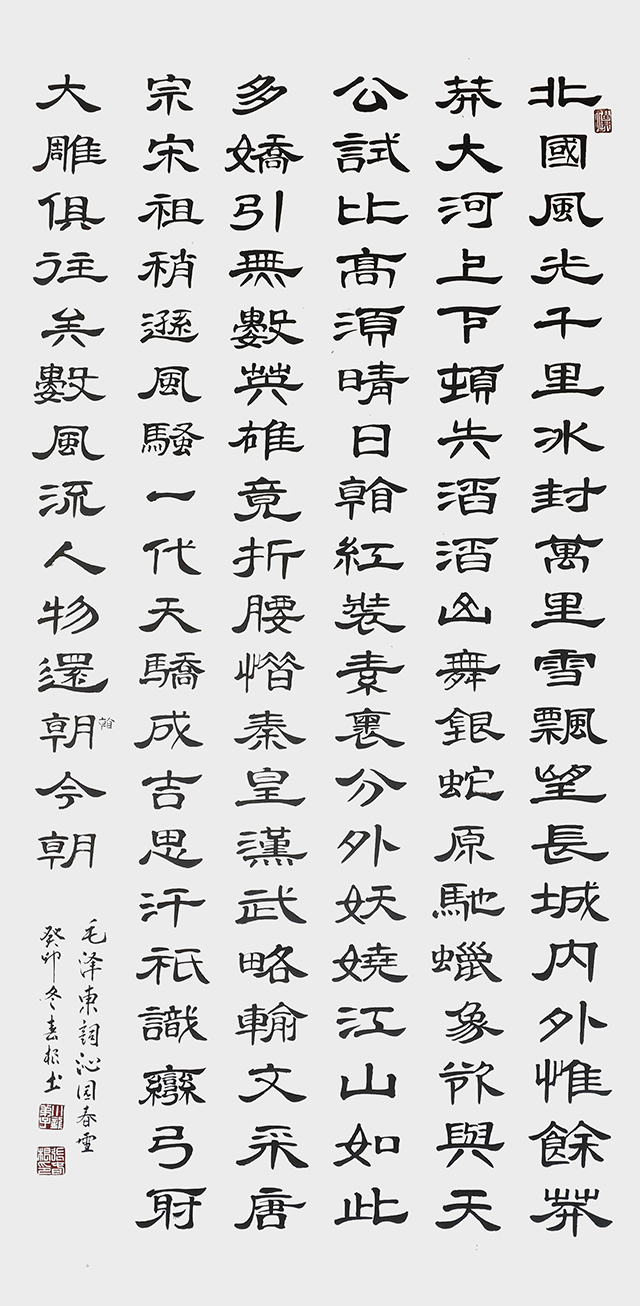 北國風光千里冰封萬里雪飄望長城内外惟餘莽
莽大河上下頓失滔滔山舞銀蛇原馳蠟象欲與天
公試比高須晴日看紅裝素裹分外妖嬈江山如此
多嬌引無數英雄竟折腰惜秦皇漢武略輸文采唐
宗宋祖稍遜風騷一代天驕成吉思汗祇識彎弓射
大雕俱往矣數風流人物還朝今朝
看
毛泽東詞沁园春雪
癸卯冬春根书